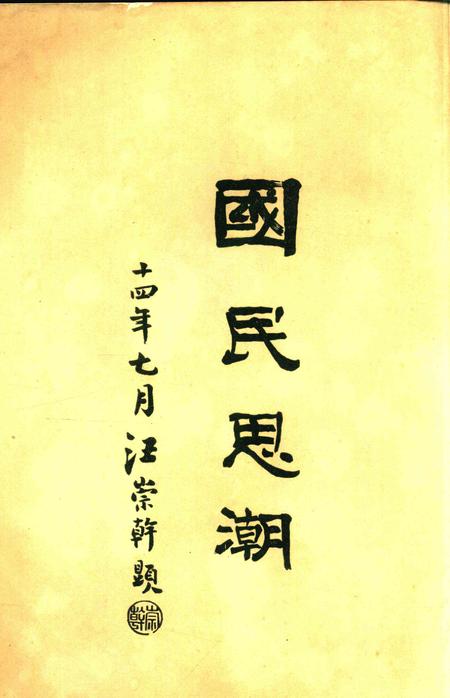 國民思潮
十四年七月汪崇幹題
崇幹